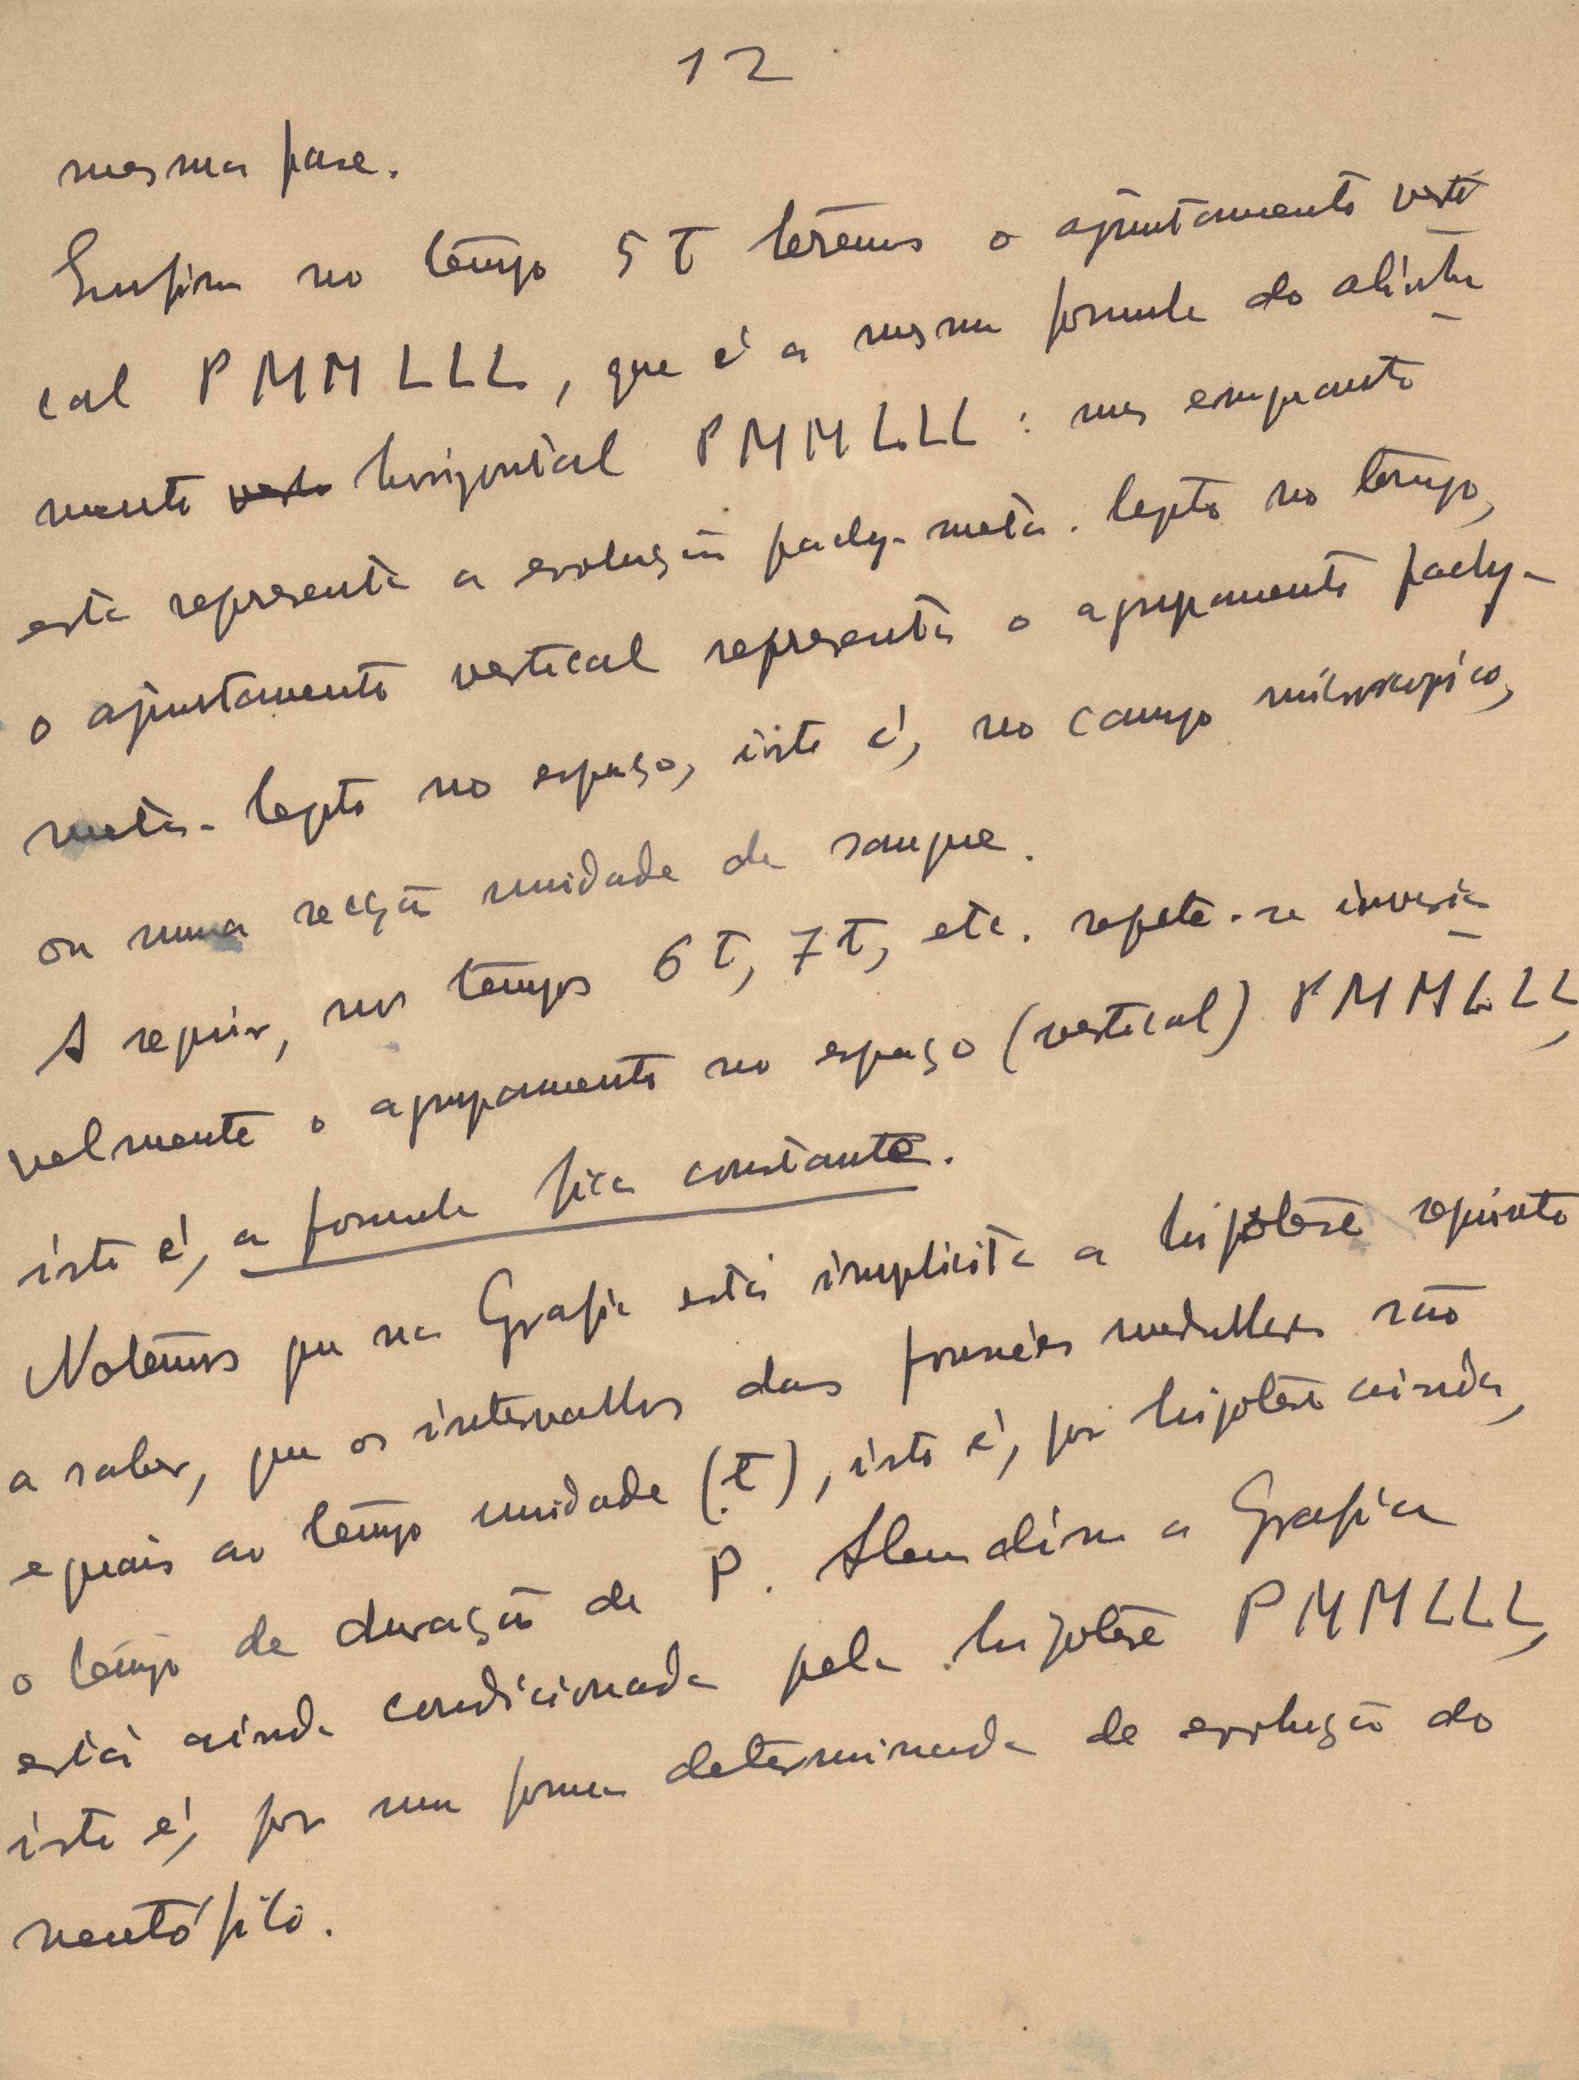 12
mesma fase.
Emfim no tempo 5 T teremos o ajuntamento verti
cal PMMLLL, que é a mesma formula do alinha-
mento verti horizontal PMMLLL : mas emquanto
esta representa a evolução pachy-meta-lepto no tempo,
o ajuntamento vertical representa o agrupamento pachy-
meta-lepto no espaço, isto é, no campo microscopico,
ou numa secção unidade de sangue.
A seguir, nos tempos 6 T, 7 T, etc. repete-se invaria-
velmente o agrupamento no espaço (vertical) PMMLLL,
isto é, a formula fica constante.
Notemos que na Grafia está implicita a hipótese seguinte
a saber, que os intervallos das fornadas medullares são
eguais ao tempo unidade (T), isto é, por hipótese ainda,
o tempo de duração de P. Alem disso a Grafia
está ainda condicionada pela hipótese PMMLLL,
isto é, por uma forma determinada de evolução do
neutrófilo.